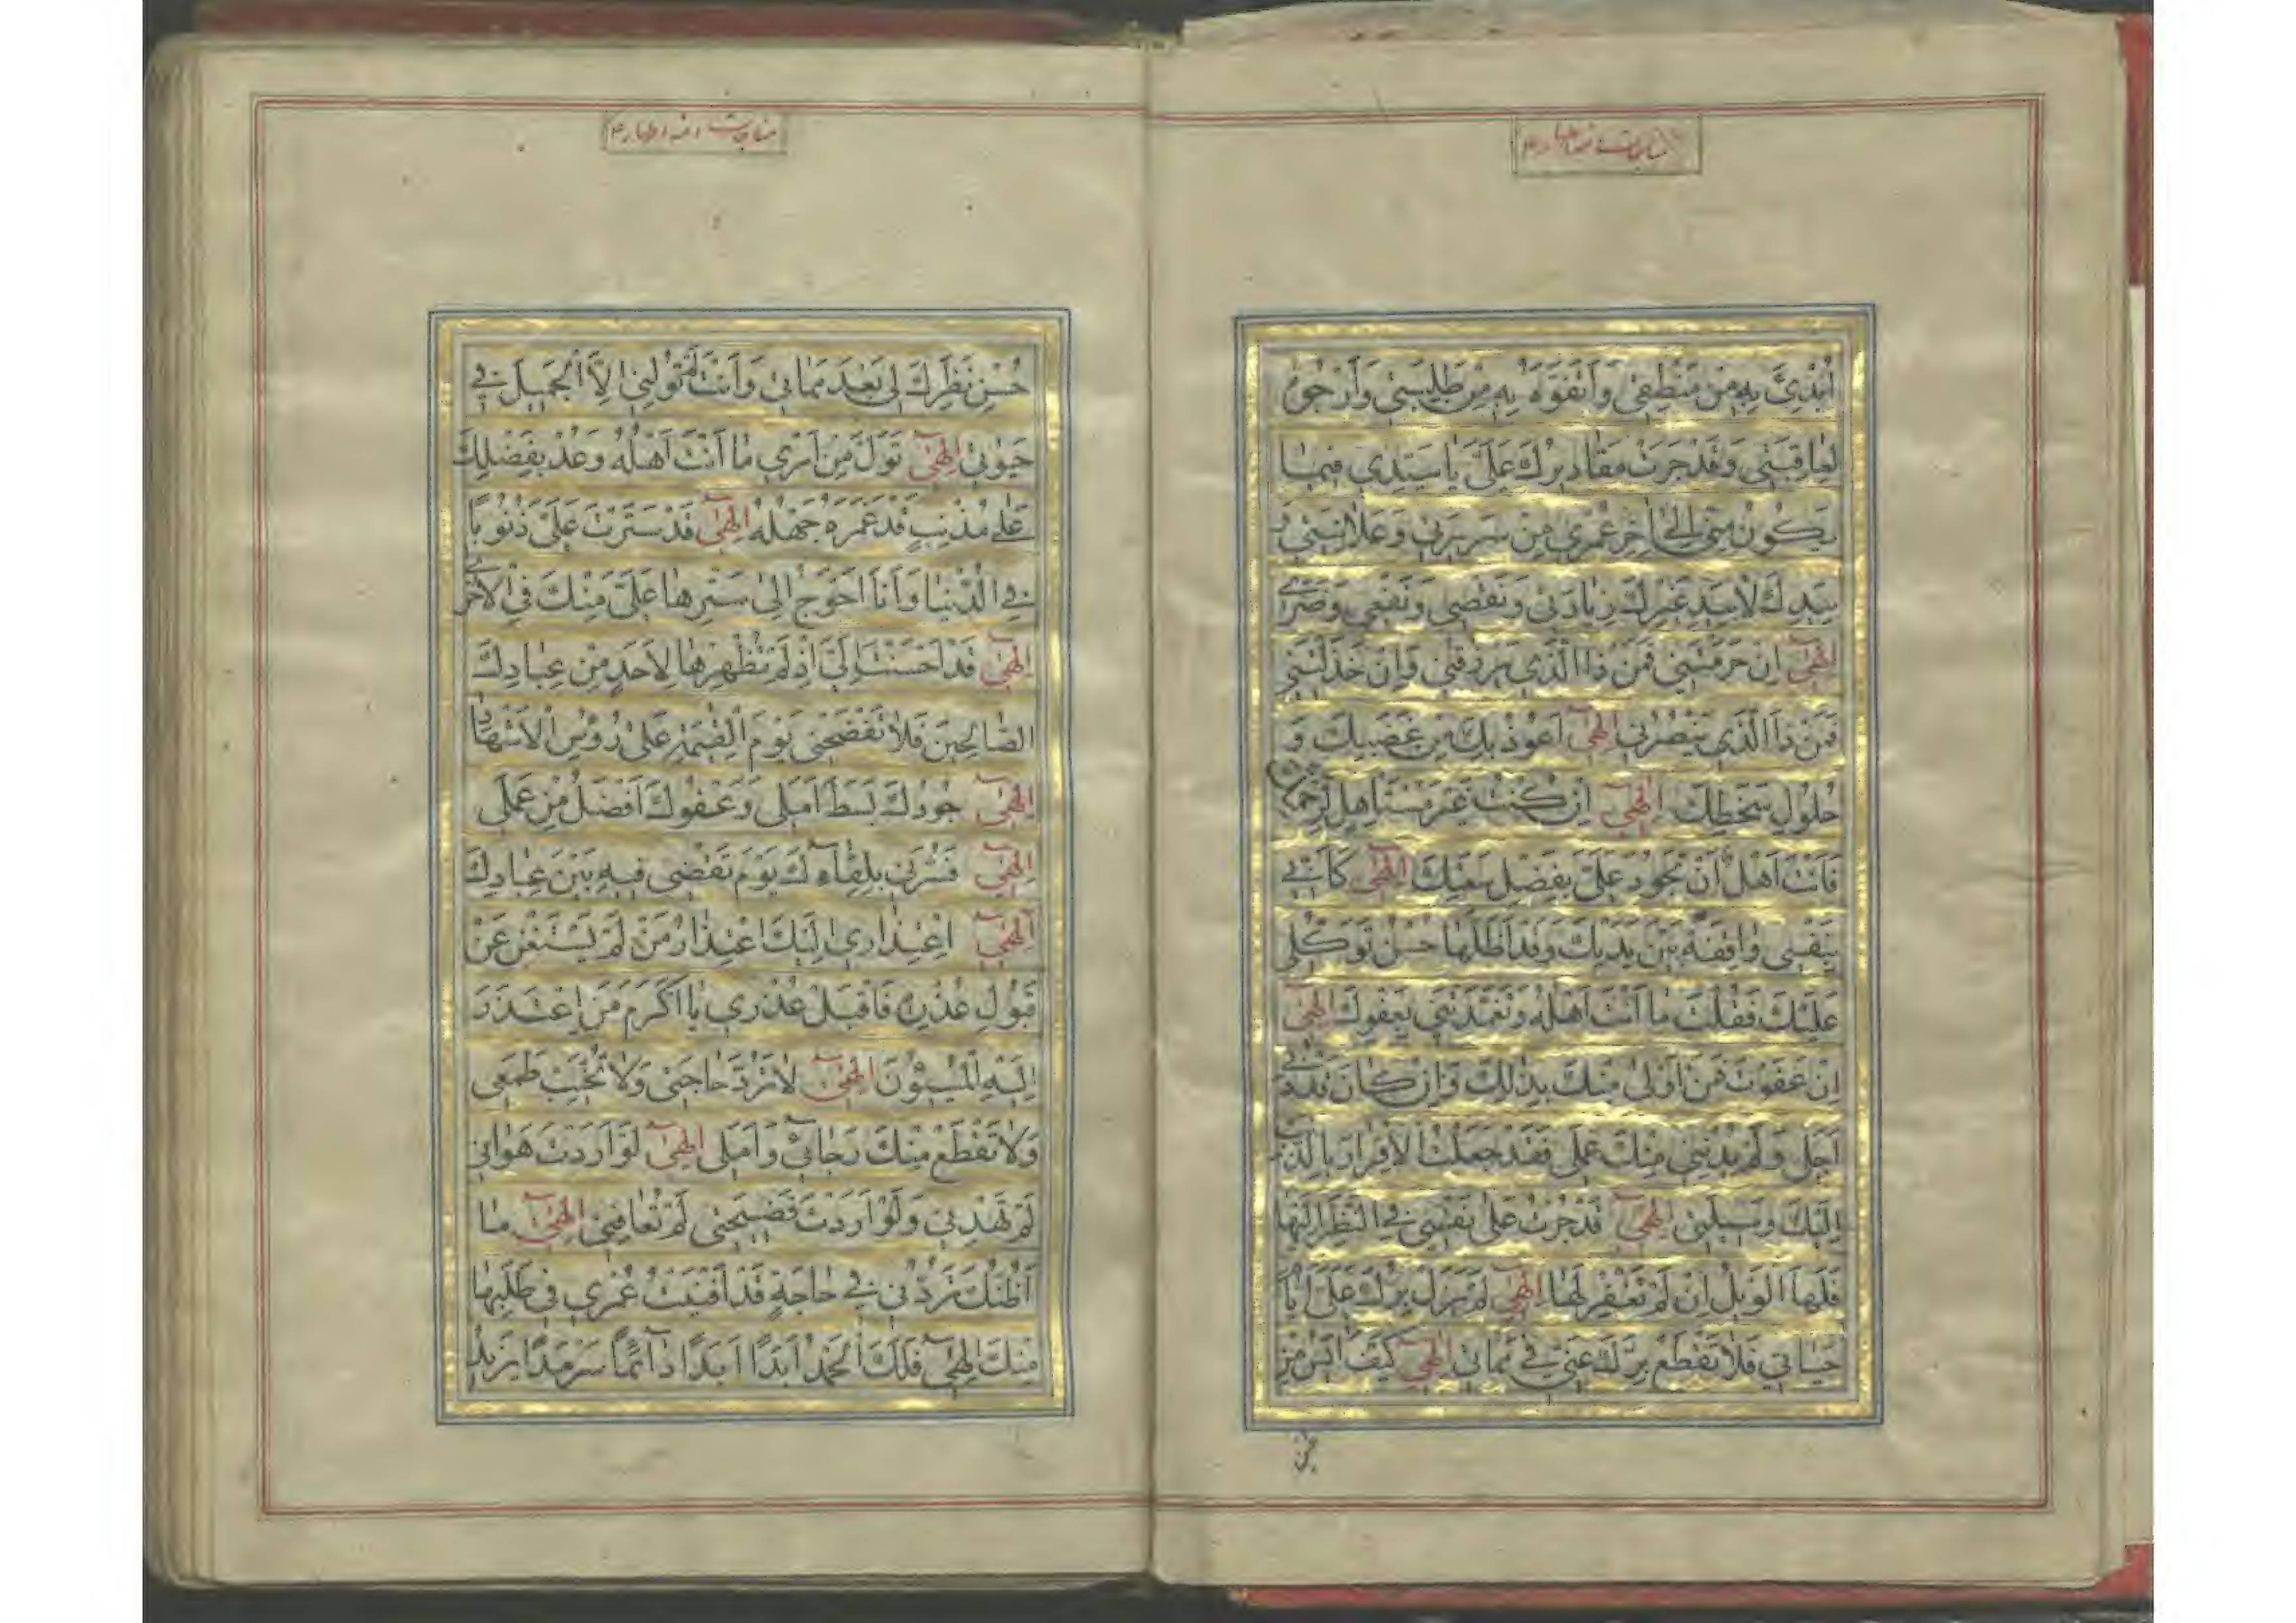 مناجات ائمه اطهار ۴
أُبْدِئَ بِهِ مِنْ مَنْطِقِي وَأَتَفَوَّهُ بِهِ مِنْ طَلِبَتِي وَأَرْجُوهُ
لِعَاقِبَتِي وَقَدْ جَرَتْ مَقَادِيرُكَ عَلَيَّ يَا سَيِّدِي فِيمَا
يَكُونُ مِنِّي إِلَى آخِرِ عُمْرِي مِنْ سَرِيرَتِي وَعَلَانِيَتِي وَ
بِيَدِكَ لَا بِيَدِ غَيْرِكَ زِيَادَتِي وَنَقْصِي وَنَفْعِي وَضَرِّي
إِلٰهِي إِنْ حَرَمْتَنِي فَمَنْ ذَا الَّذِي يَرْزُقُنِي وَإِنْ خَذَلْتَنِي
فَمَنْ ذَا الَّذِي يَنْصُرُنِي إِلٰهِي أَعُوذُ بِكَ مِنْ غَضَبِكَ وَ
حُلُولِ سَخَطِكَ إِلٰهِي إِنْ كُنْتُ غَيْرَ مُسْتَأْهِلٍ لِرَحْمَتِكَ
فَأَنْتَ أَهْلٌ أَنْ تَجُودَ عَلَيَّ بِفَضْلِ سَعَتِكَ إِلٰهِي كَأَنِّي
بِنَفْسِي وَاقِفَةٌ بَيْنَ يَدَيْكَ وَقَدْ أَظَلَّهَا حُسْنُ تَوَكُّلِي
عَلَيْكَ فَقُلْتَ مَا أَنْتَ أَهْلُهُ وَتَغَمَّدْتَنِي بِعَفْوِكَ إِلٰهِي
إِنْ عَفَوْتَ فَمَنْ أَوْلَى مِنْكَ بِذٰلِكَ وَإِنْ كَانَ قَدْ دَنَا
أَجَلِي وَلَمْ يُدْنِنِي مِنْكَ عَمَلِي فَقَدْ جَعَلْتُ الْإِقْرَارَ بِالذَّنْبِ
إِلَيْكَ وَسِيلَتِي إِلٰهِي قَدْ جُرْتُ عَلَى نَفْسِي فِي النَّظَرِ لَهَا
فَلَهَا الْوَيْلُ إِنْ لَمْ تَغْفِرْ لَهَا إِلٰهِي لَمْ يَزَلْ بِرُّكَ عَلَيَّ أَيَّامَ
حَيَاتِي فَلَا تَقْطَعْ بِرَّكَ عَنِّي فِي مَمَاتِي إِلٰهِي كَيْفَ آيَسُ مِنْ
مناجات ائمه اطهار ۴
حُسْنِ نَظَرِكَ لِي بَعْدَ مَمَاتِي وَأَنْتَ لَمْ تُوَلِّنِي إِلَّا الْجَمِيلَ فِي
حَيٰوتِي إِلٰهِي تَوَلَّ مِنْ أَمْرِي مَا أَنْتَ أَهْلُهُ وَعُدْ بِفَضْلِكَ
عَلَى مُذْنِبٍ قَدْ غَمَرَهُ جَهْلُهُ إِلٰهِي قَدْ سَتَرْتَ عَلَيَّ ذُنُوبًا
فِي الدُّنْيَا وَأَنَا أَحْوَجُ إِلَى سَتْرِهَا عَلَيَّ مِنْكَ فِي الْأُخْرَى
إِلٰهِي قَدْ أَحْسَنْتَ إِلَيَّ إِذْ لَمْ تُظْهِرْهَا لِأَحَدٍ مِنْ عِبَادِكَ
الصَّالِحِينَ فَلَا تَفْضَحْنِي يَوْمَ الْقِيٰمَةِ عَلَى رُؤُسِ الْأَشْهَادِ
إِلٰهِي جُودُكَ بَسَطَ أَمَلِي وَعَفْوُكَ أَفْضَلُ مِنْ عَمَلِي
إِلٰهِي فَسُرَّنِي بِلِقَائِكَ يَوْمَ تَقْضِي فِيهِ بَيْنَ عِبَادِكَ
إِلٰهِي اعْتِذَارِي إِلَيْكَ اعْتِذَارُ مَنْ لَمْ يَسْتَغْنِ عَنْ
قَبُولِ عُذْرِهِ فَاقْبَلْ عُذْرِي يَا أَكْرَمَ مَنِ اعْتَذَرَ
إِلَيْهِ الْمُسِيئُونَ إِلٰهِي لَا تَرُدَّ حَاجَتِي وَلَا تُخَيِّبْ طَمَعِي
وَلَا تَقْطَعْ مِنْكَ رَجَائِي وَأَمَلِي إِلٰهِي لَوْ أَرَدْتَ هَوَانِي
لَمْ تَهْدِنِي وَلَوْ أَرَدْتَ فَضِيحَتِي لَمْ تُعَافِنِي إِلٰهِي مَا
أَظُنُّكَ تَرُدُّنِي فِي حَاجَةٍ قَدْ أَفْنَيْتُ عُمْرِي فِي طَلَبِهَا
مِنْكَ إِلٰهِي فَلَكَ الْحَمْدُ أَبَدًا أَبَدًا دَائِمًا سَرْمَدًا يَزِيدُ